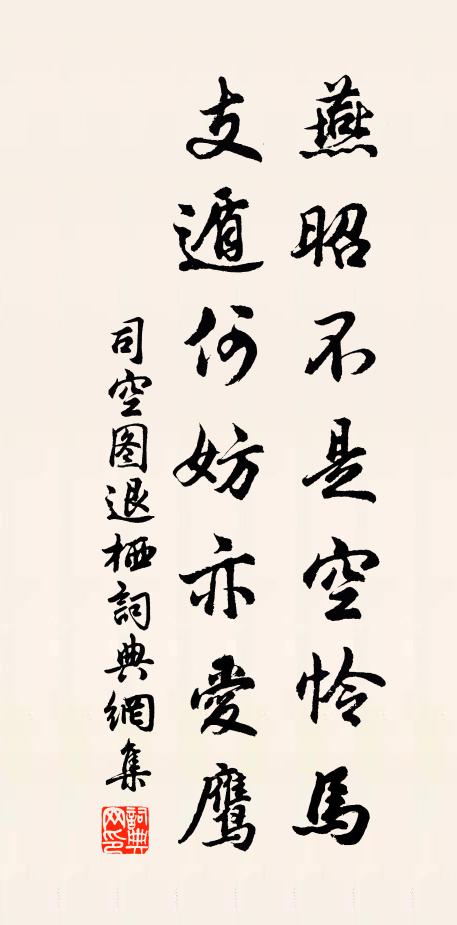 燕昭不是空怜馬
支遁何妨亦愛鷹
司空图退栖詞典網集
詞典网印